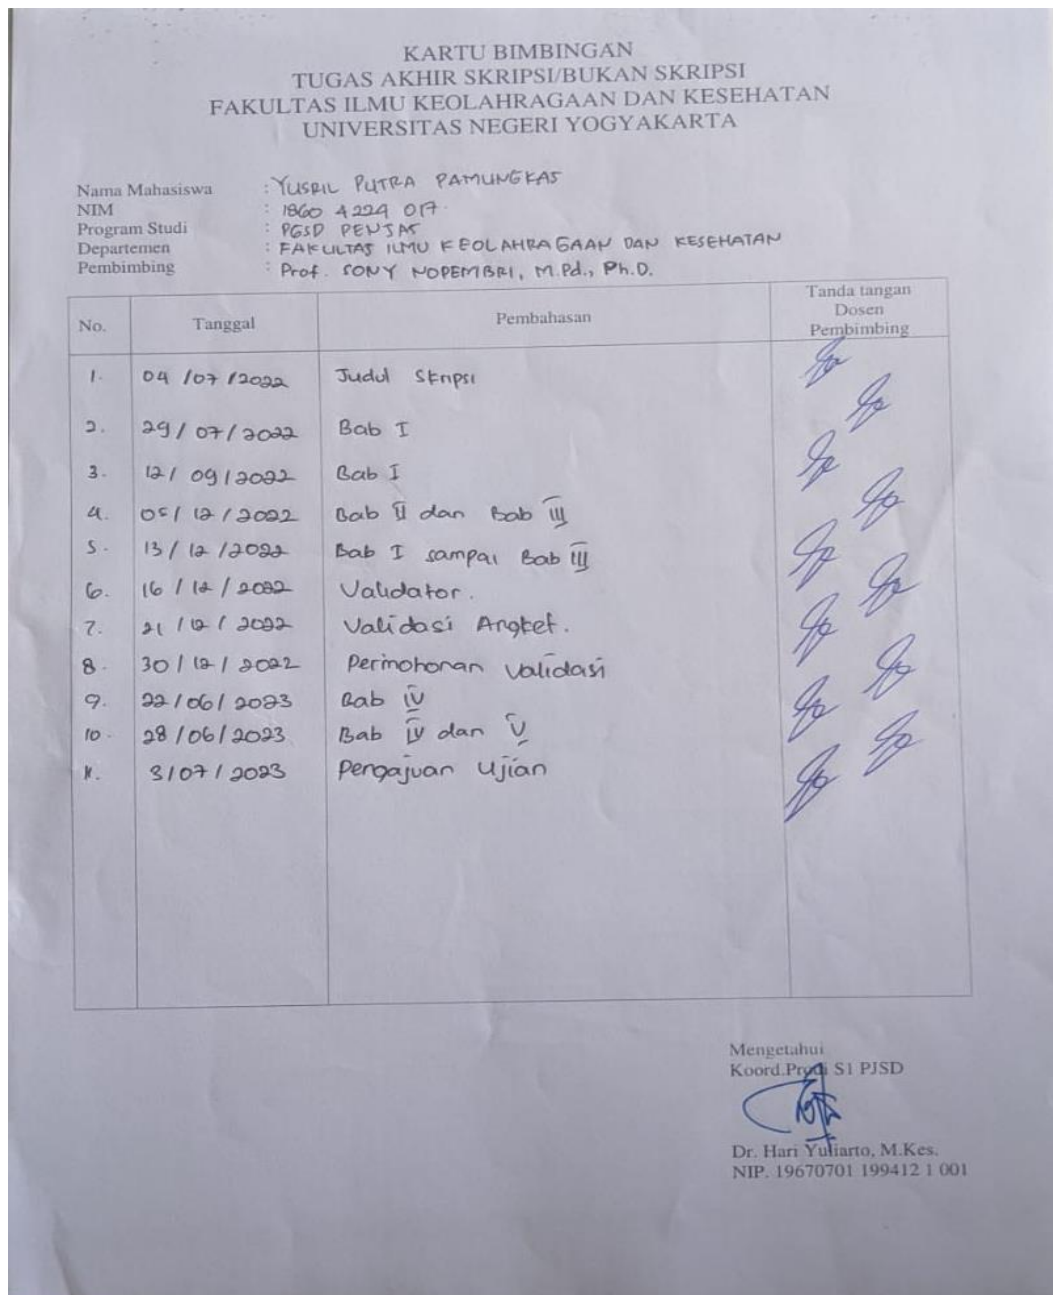 KARTU BIMBINGAN
TUGAS AKHIR SKRIPSI/BUKAN SKRIPSI
FAKULTAS ILMU KEOLAHRAGAAN DAN KESEHATAN
UNIVERSITAS NEGERI YOGYAKARTA
Nama Mahasiswa : YUSRIL PUTRA PAMUNGKAS
NIM : 1860 4224 017
Program Studi : PGSD PENJAS
Departemen : FAKULTAS ILMU KEOLAHRAGAAN DAN KESEHATAN
Pembimbing : Prof. SONY NOPEMBRI, M.Pd., Ph.D.
No. Tanggal Pembahasan Tanda tangan Dosen Pembimbing
1. 04/07/2022 Judul Skripsi
2. 29/07/2022 Bab I
3. 12/09/2022 Bab I
4. 05/12/2022 Bab II dan Bab III
5. 13/12/2022 Bab I sampai Bab III
6. 16/12/2022 Validator.
7. 21/12/2022 Validasi Angket.
8. 30/12/2022 Permohonan Validasi
9. 22/06/2023 Bab IV
10. 28/06/2023 Bab IV dan V
11. 3/07/2023 Pengajuan Ujian
Mengetahui
Koord.Prodi S1 PJSD
Dr. Hari Yuliarto, M.Kes.
NIP. 19670701 199412 1 001